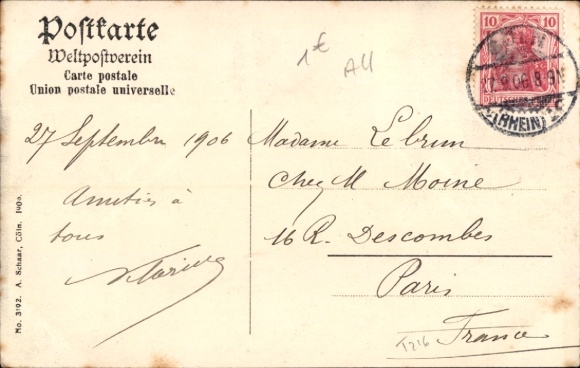 Postkarte
Weltpostverein
Carte postale
Union postale universelle
1€
All
10 10
27.9.06.8-9N
DEUTSCHES REICH
(RHEIN)
27 Septembre 1906
Amitiés à
tous
Madame Lebrun
Chez M Moine
16 R. Descombes
Paris
France
T216
No. 3192. A. Schaar, Cöln. 1905.